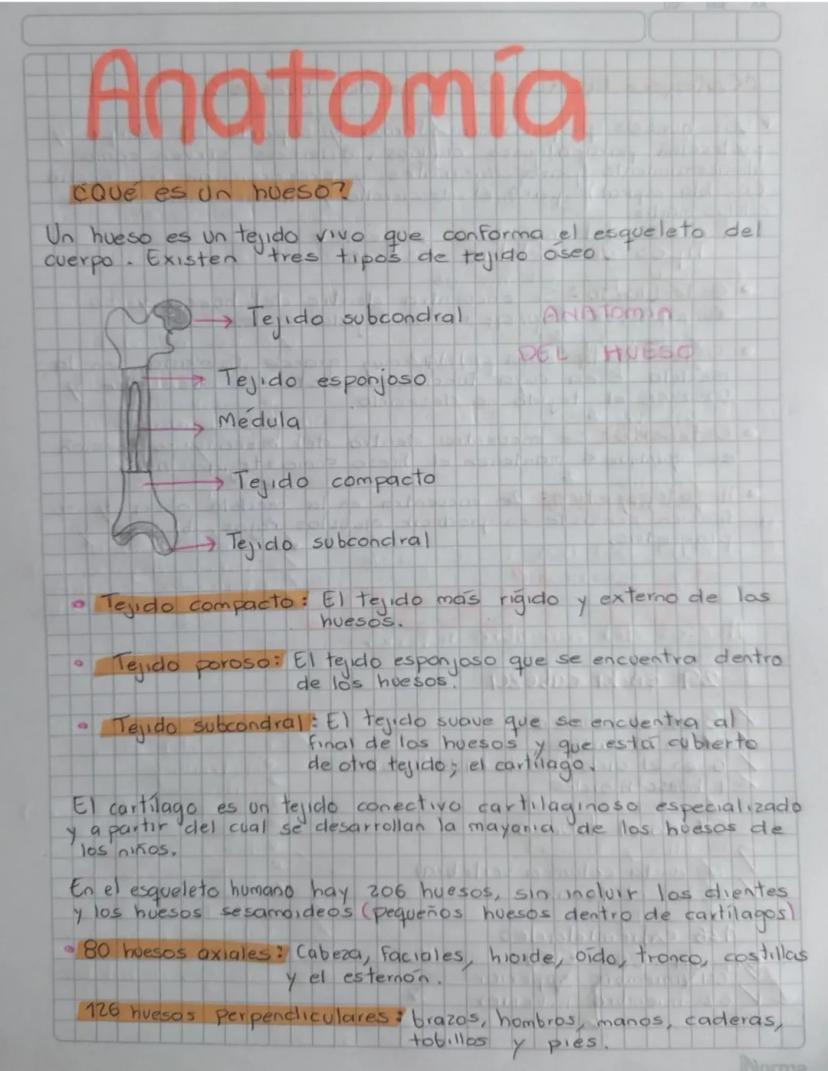 Anatomía
¿Qué es un hueso?
Un hueso es un tejido vivo que conforma el esqueleto del
cuerpo. Existen tres tipos de tejido óseo.
ANATOMIA
DEL HUESO
Tejido subcondral
Tejido esponjoso
Médula
Tejido compacto
Tejido subcondral
• Tejido compacto: El tejido más rígido y externo de los
huesos.
• Tejido poroso: El tejido esponjoso que se encuentra dentro
de los huesos.
• Tejido subcondral: El tejido suave que se encuentra al
final de los huesos y que está cubierto
de otro tejido; el cartílago.
El cartílago es un tejido conectivo cartilaginoso especializado
y a partir del cual se desarrollan la mayoria de los huesos de
los niños.
En el esqueleto humano hay 206 huesos, sin incluir los dientes
y los huesos sesamoideos (pequeños huesos dentro de cartílagos)
• 80 huesos axiales: Cabeza, faciales, hioide, oído, tronco, costillas
y el esternón.
126 huesos perpendiculares: brazos, hombros, manos, caderas,
tobillos y pies.
Norma